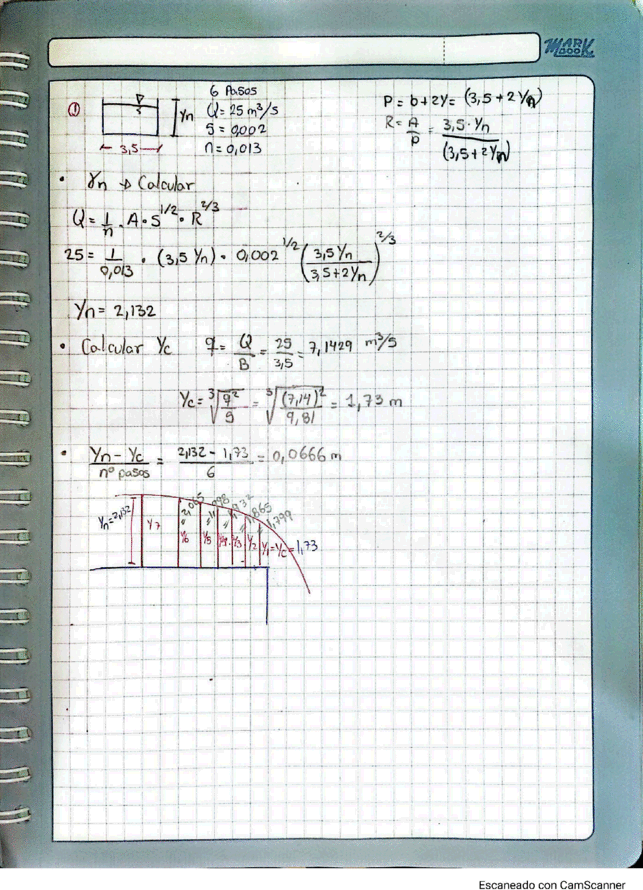 MARK BOOK
6 Pasos
① Yn Q = 25 m³/s
S = 0,002
3,5 n = 0,013
P = b + 2Y = (3,5 + 2Yn)
R = A/P = 3,5 · Yn / (3,5 + 2Yn)
• Yn → Calcular
Q = 1/n · A · S^1/2 · R^2/3
25 = 1/0,013 · (3,5 Yn) · 0,002^1/2 (3,5 Yn / 3,5 + 2Yn)^2/3
Yn = 2,132
• Calcular Yc q = Q/B = 25/3,5 = 7,1429 m³/s
Yc = ³√(q²/g) = ³√((7,14)²/9,81) = 1,73 m
• Yn - Yc / nº pasos = 2,132 - 1,73 / 6 = 0,0666 m
Yn = 2,132 Y7 Y6 = 2,065 Y5 Y4 Y3 Y2 = 1,799 Y1 = Yc = 1,73
1,865
Escaneado con CamScanner